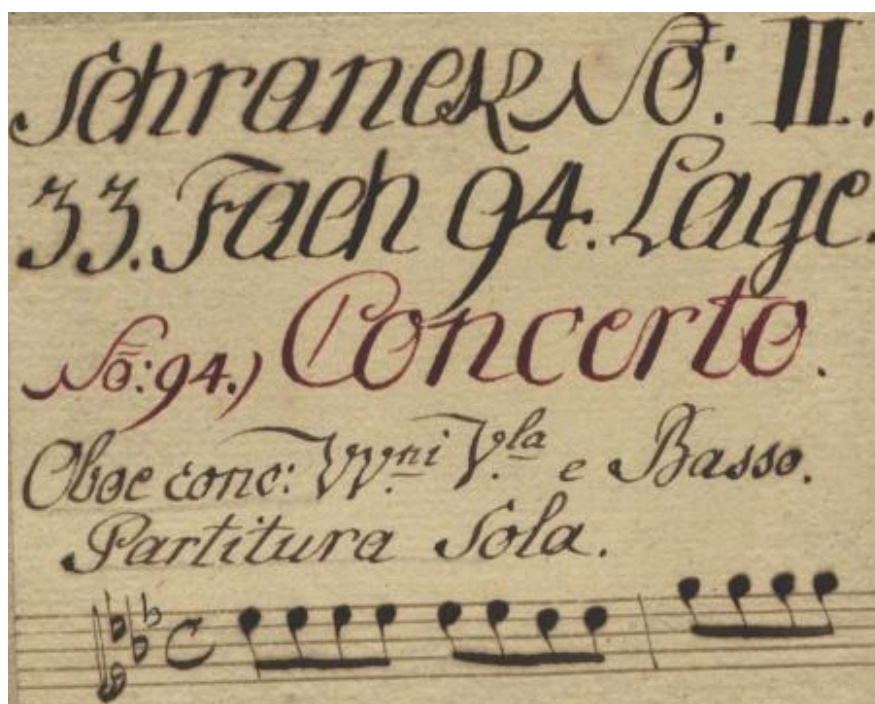 Schranck No: II.
33. Fach 94. Lage.
No: 94.) Concerto.
Oboe conc: VV.ni V.la e Basso.
Partitura Sola.